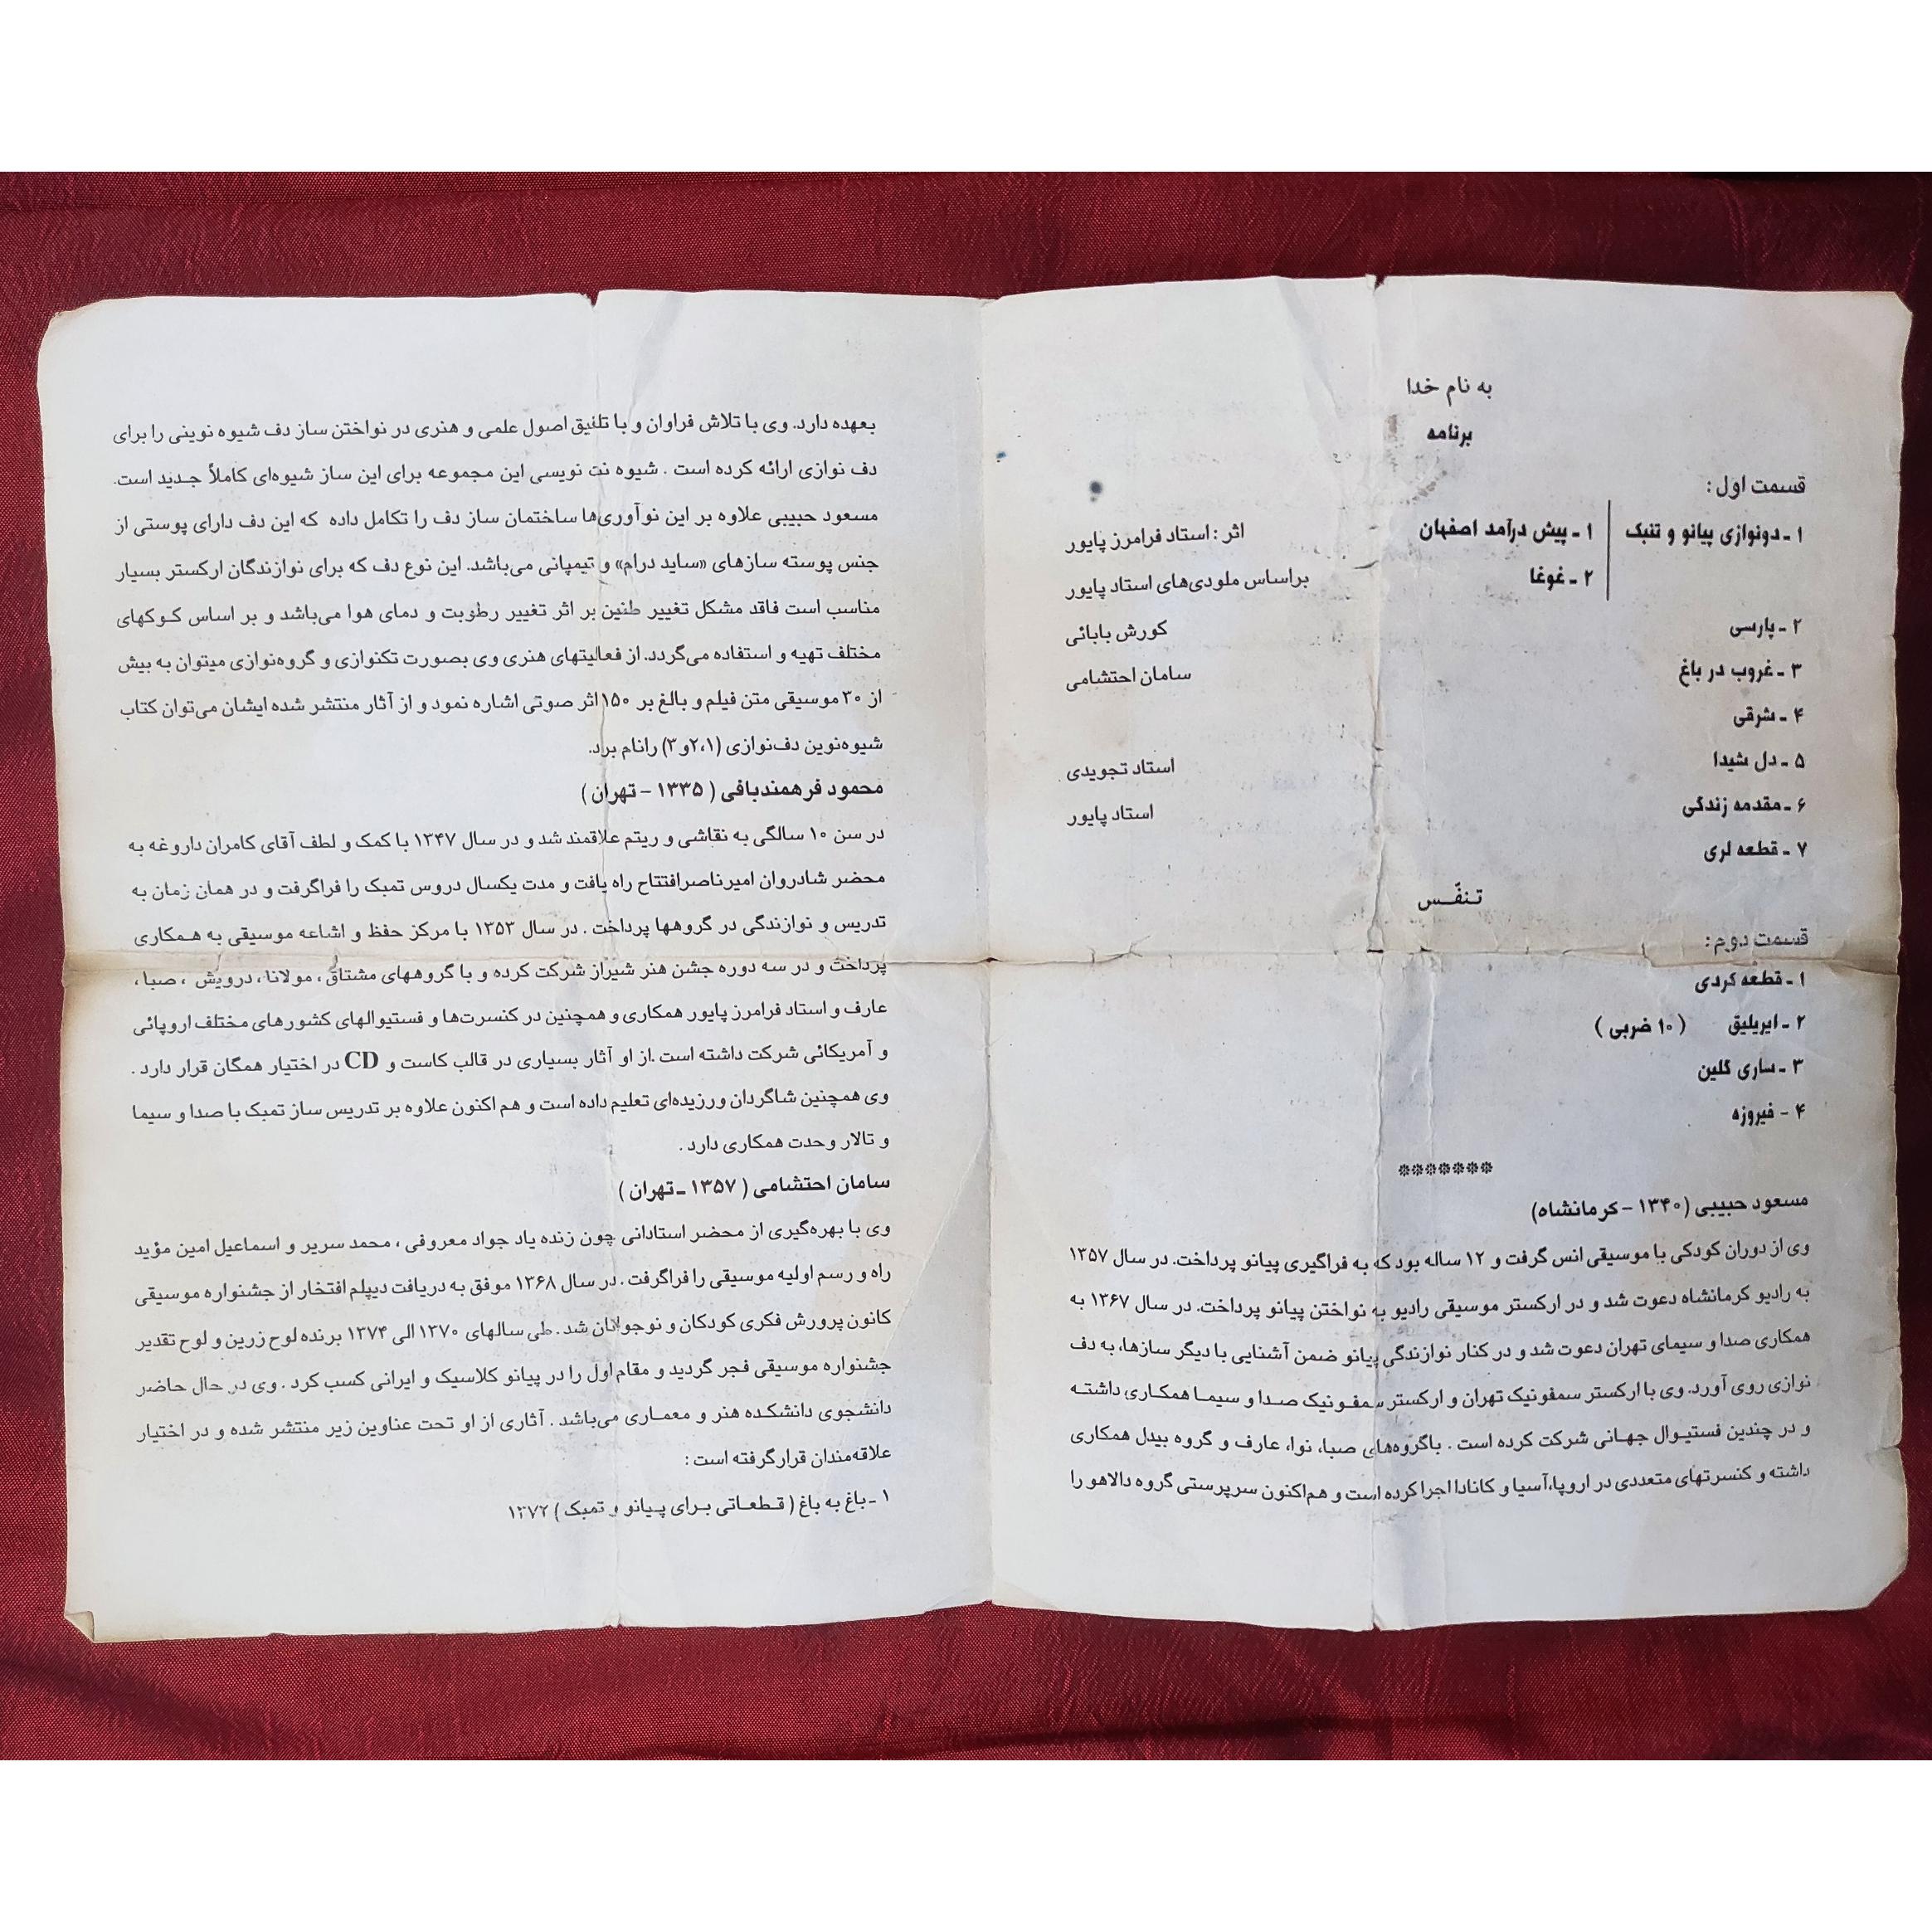 به نام خدا
برنامه
قسمت اول :
۱ ـ دونوازی پیانو و تنبک ۱ ـ پیش درآمد اصفهان اثر : استاد فرامرز پایور
۲ ـ غوغا براساس ملودی‌های استاد پایور
۲ ـ پارسی کورش بابائی
۳ ـ غروب در باغ سامان احتشامی
۴ ـ شرقی
۵ ـ دل شیدا استاد تجویدی
۶ ـ مقدمه زندگی استاد پایور
۷ ـ قطعه لری
تـنفّـس
قسمت دوم :
۱ ـ قطعه کردی
۲ ـ ایریلیق ( ۱۰ ضربی )
۳ ـ ساری گلین
۴ - فیروزه
*******
مسعود حبیبی (۱۳۴۰ - کرمانشاه)
وی از دوران کودکی با موسیقی انس گرفت و ۱۲ ساله بود که به فراگیری پیانو پرداخت. در سال ۱۳۵۷
به رادیو کرمانشاه دعوت شد و در ارکستر موسیقی رادیو به نواختن پیانو پرداخت. در سال ۱۳۶۷ به
همکاری صدا و سیمای تهران دعوت شد و در کنار نوازندگی پیانو ضمن آشنایی با دیگر سازها، به دف
نوازی روی آورد. وی با ارکستر سمفونیک تهران و ارکستر سمفـونیک صـدا و سیمـا همکـاری داشتـه
و در چندین فستیـوال جهـانی شرکت کرده است . باگروه‌های صبا، نوا، عارف و گروه بیدل همکاری
داشته و کنسرتهای متعددی در اروپا،آسیا و کانادا اجرا کرده است و هم‌اکنون سرپرستی گروه دالاهو را
بعهده دارد. وی با تلاش فراوان و با تلفیق اصول علمی و هنری در نواختن ساز دف شیوه نوینی را برای
دف نوازی ارائه کرده است . شیوه نت نویسی این مجموعه برای این ساز شیوه‌ای کاملاً جـدید است.
مسعود حبیبی علاوه بر این نوآوری‌ها ساختمان ساز دف را تکامل داده که این دف دارای پوستی از
جنس پوسته سازهای «ساید درام» و تیمپانی می‌باشد. این نوع دف که برای نوازندگان ارکستر بسیار
مناسب است فاقد مشکل تغییر طنین بر اثر تغییر رطوبت و دمای هوا می‌باشد و بر اساس کـوکهای
مختلف تهیه و استفاده می‌گردد. از فعالیتهای هنری وی بصورت تکنوازی و گروه‌نوازی میتوان به بیش
از ۳۰ موسیقی متن فیلم و بالغ بر ۱۵۰ اثر صوتی اشاره نمود و از آثار منتشر شده ایشان می‌توان کتاب
شیوه‌نوین دف‌نوازی (۲،۱و۳) رانام برد.
محمود فرهمندبافی ( ۱۳۳۵ - تهران )
در سن ۱۰ سالگی به نقاشی و ریتم علاقمند شد و در سال ۱۳۴۷ با کمک و لطف آقای کامران داروغه به
محضر شادروان امیرناصرافتتاح راه یافت و مدت یکسال دروس تمبک را فراگرفت و در همان زمان به
تدریس و نوازندگی در گروهها پرداخت . در سال ۱۳۵۳ با مرکز حفظ و اشاعه موسیقی به هـمکاری
پرداخت و در سه دوره جشن هنر شیراز شرکت کرده و با گروههای مشتاق ، مولانا ، درویش ، صبا ،
عارف و استاد فرامرز پایور همکاری و همچنین در کنسرت‌ها و فستیوالهای کشورهای مختلف اروپائی
و آمریکائی شرکت داشته است .از او آثار بسیاری در قالب کاست و CD در اختیار همگان قرار دارد .
وی همچنین شاگردان ورزیده‌ای تعلیم داده است و هم اکنون علاوه بر تدریس ساز تمبک با صدا و سیما
و تالار وحدت همکاری دارد .
سامان احتشامی ( ۱۳۵۷ ـ تهران )
وی با بهره‌گیری از محضر استادانی چون زنده یاد جواد معروفی ، محمد سریر و اسماعیل امین مؤید
راه و رسم اولیه موسیقی را فراگرفت . در سال ۱۳۶۸ موفق به دریافت دیپلم افتخار از جشنواره موسیقی
کانون پرورش فکری کودکان و نوجوانان شد . طی سالهای ۱۳۷۰ الی ۱۳۷۴ برنده لوح زرین و لوح تقدیر
جشنواره موسیقی فجر گردید و مقام اول را در پیانو کلاسیک و ایرانی کسب کرد . وی در حال حاضر
دانشجوی دانشکـده هنر و معمـاری می‌باشد . آثاری از او تحت عناوین زیر منتشر شده و در اختیار
علاقه‌مندان قرارگرفته است :
۱ ـ باغ به باغ ( قـطعـاتی بـرای پـیانو و تمبک )